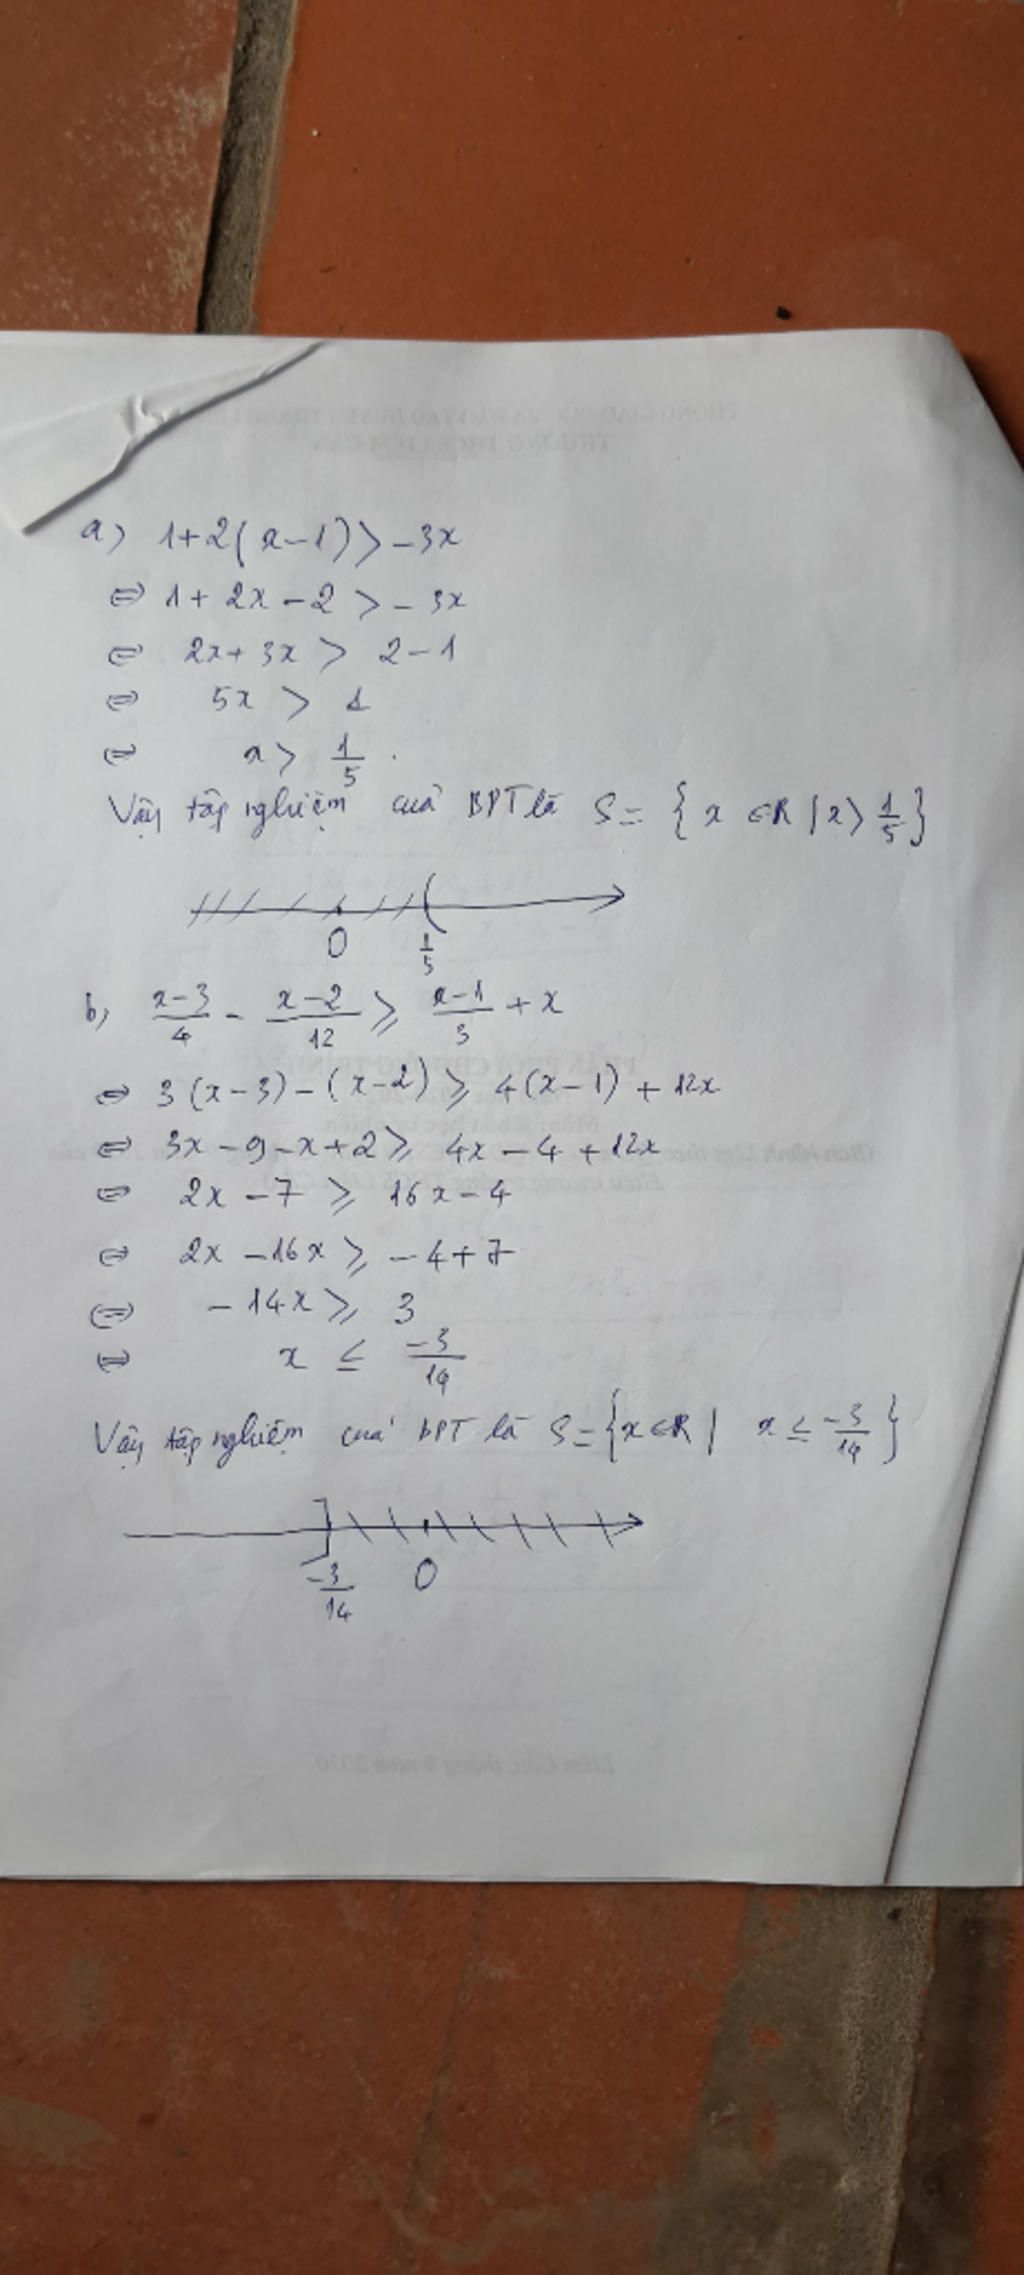 a) 1+2(x-1) > -3x
⇔ 1 + 2x - 2 > - 3x
⇔ 2x + 3x > 2 - 1
⇔ 5x > 1
⇔ x > 1/5 .
Vậy tập nghiệm của BPT là S = { x ∈ R | x > 1/5 }
0 1/5
b, (x-3)/4 - (x-2)/12 ≥ (x-1)/3 + x
⇔ 3(x-3) - (x-2) ≥ 4(x-1) + 12x
⇔ 3x - 9 - x + 2 ≥ 4x - 4 + 12x
⇔ 2x - 7 ≥ 16x - 4
⇔ 2x - 16x ≥ - 4 + 7
⇔ - 14x ≥ 3
⇔ x ≤ -3/14
Vậy tập nghiệm của BPT là S = { x ∈ R | x ≤ -3/14 }
-3/14 0